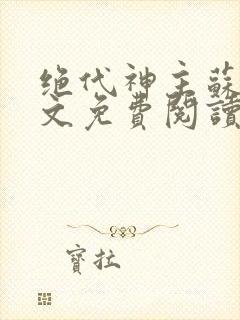 绝代神主蘇
文免費閱讀
寶拉